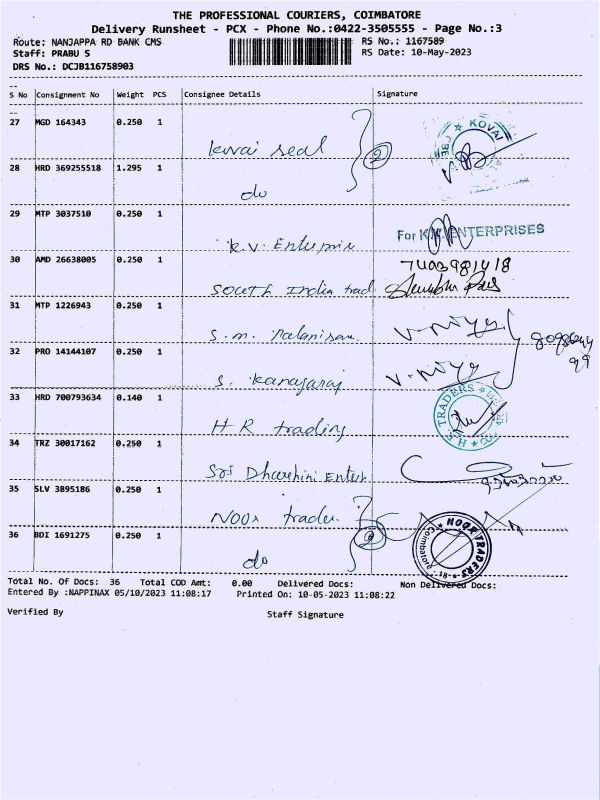 THE PROFESSIONAL COURIERS, COIMBATORE
Delivery Runsheet - PCX - Phone No.:0422-3505555 - Page No.:3
Route: NANJAPPA RD BANK CMS RS No.: 1167589
Staff: PRABU S RS Date: 10-May-2023
DRS No.: DCJB116758903
S No Consignment No Weight PCS Consignee Details Signature
27 MGD 164343 0.250 1
kovai seal 2
KOVAI CBE
28 HRD 369255518 1.295 1
do
29 MTP 3037510 0.250 1
K.V. Enterprise
For K.V. ENTERPRISES
30 AMD 26638005 0.250 1
7403981418
SOUTH India trad
31 MTP 1226943 0.250 1
S.M. Palanisam
32 PRO 14144107 0.250 1
S. Kanagaraj
33 HRD 700793634 0.140 1
H R trading
H.R. TRADERS
34 TRZ 30017162 0.250 1
Sri Dharshini Enter
35 SLV 3895186 0.250 1
Noor trader
36 BDI 1691275 0.250 1
do
NOOR TRADERS
Coimbatore - 18
Total No. Of Docs: 36 Total COD Amt: 0.00 Delivered Docs: Non Delivered Docs:
Entered By :NAPPINAX 05/10/2023 11:08:17 Printed On: 10-05-2023 11:08:22
Verified By Staff Signature